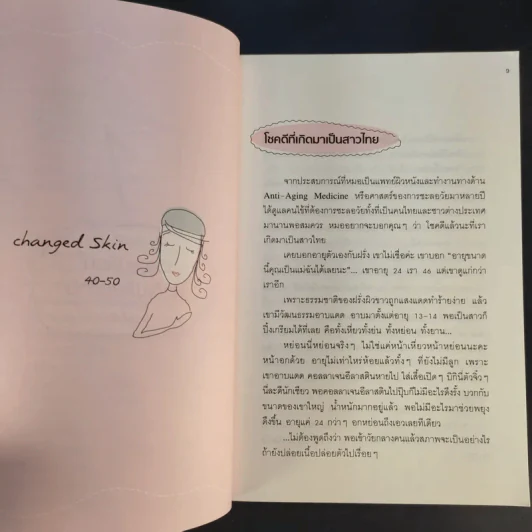 changed Skin
40-50
9
โชคดีที่เกิดมาเป็นสาวไทย
จากประสบการณ์ที่หมอเป็นแพทย์ผิวหนังและทำงานทางด้าน
Anti-Aging Medicine หรือศาสตร์ของการชะลอวัยมาหลายปี
ได้ดูแลคนไข้ที่ต้องการชะลอวัยทั้งที่เป็นคนไทยและชาวต่างประเทศ
มานานพอสมควร หมออยากจะบอกคุณๆ ว่า โชคดีแล้วนะที่เรา
เกิดมาเป็นสาวไทย
เคยบอกอายุตัวเองกับฝรั่ง เขาไม่เชื่อค่ะ เขาบอก "อายุขนาด
นี้คุณเป็นแม่ฉันได้เลยนะ"... เขาอายุ 24 เรา 46 แต่เขาดูแก่กว่า
เราอีก
เพราะธรรมชาติของฝรั่งผิวขาวถูกแสงแดดทำร้ายง่าย แล้ว
เขามีวัฒนธรรมอาบแดด อาบมาตั้งแต่อายุ 13-14 พอเป็นสาวก็
ปิ้งเกรียมได้ที่เลย คือทั้งเหี่ยวทั้งย่น ทั้งหย่อน ทั้งยาน...
หย่อนนี่หย่อนจริงๆ ไม่ใช่แค่หน้าเหี่ยวหน้าหย่อนนะคะ
หน้าอกด้วย อายุไม่เท่าไหร่ห้อยแล้วทั้งๆ ที่ยังไม่มีลูก เพราะ
เขาอาบแดด คอลลาเจนอีลาสตินหายไป ใส่เสื้อเปิดๆ บิกินี่ตัวจิ๋วๆ
นี่ละดีนักเชียว พอคอลลาเจนอีลาสตินไปปุ๊บก็ไม่มีอะไรดึงรั้ง บวกกับ
ขนาดของเขาใหญ่ น้ำหนักมากอยู่แล้ว พอไม่มีอะไรมาช่วยพยุง
ดึงขึ้น อายุแค่ 24 กว่าๆ อกหย่อนถึงเอวเลยทีเดียว
...ไม่ต้องพูดถึงว่า พอเข้าวัยกลางคนแล้วสภาพจะเป็นอย่างไร
ถ้ายังปล่อยเนื้อปล่อยตัวไปเรื่อยๆ